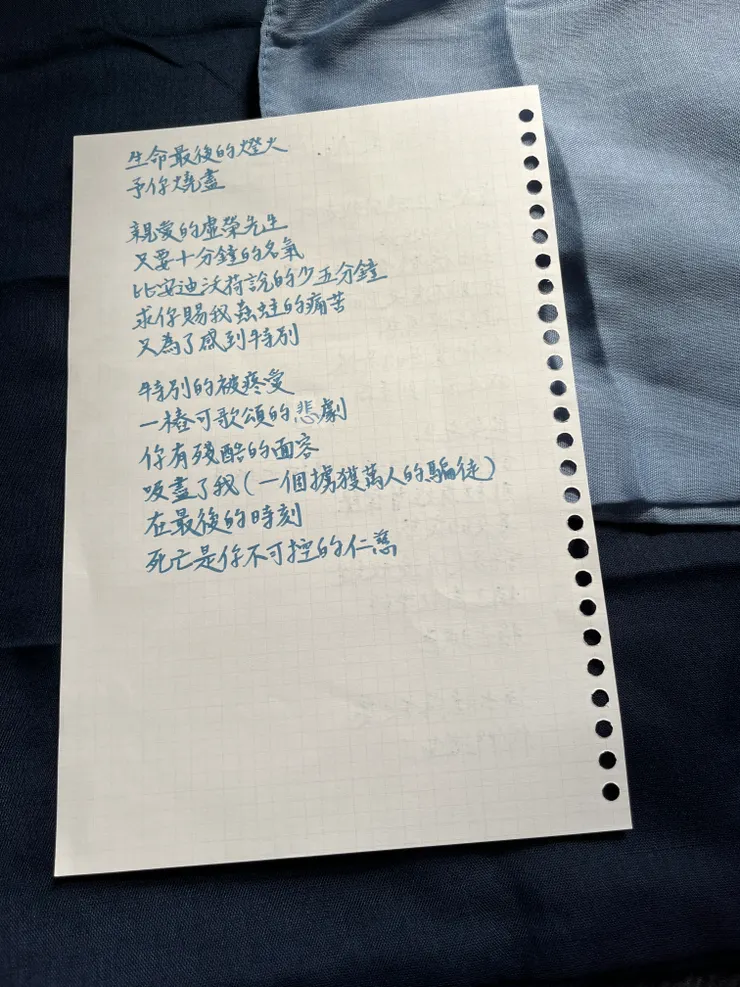 生命最後的燈火
予你燒盡
親愛的虛榮先生
只要十分鐘的名氣
比安迪沃荷說的少五分鐘
求你賜我蟲蛀的痛苦
只為了感到特別
特別的被疼愛
一樁可歌頌的悲劇
你有殘酷的面容
吸盡了我(一個擄獲萬人的騙徒)
在最後的時刻
死亡是你不可控的仁慈